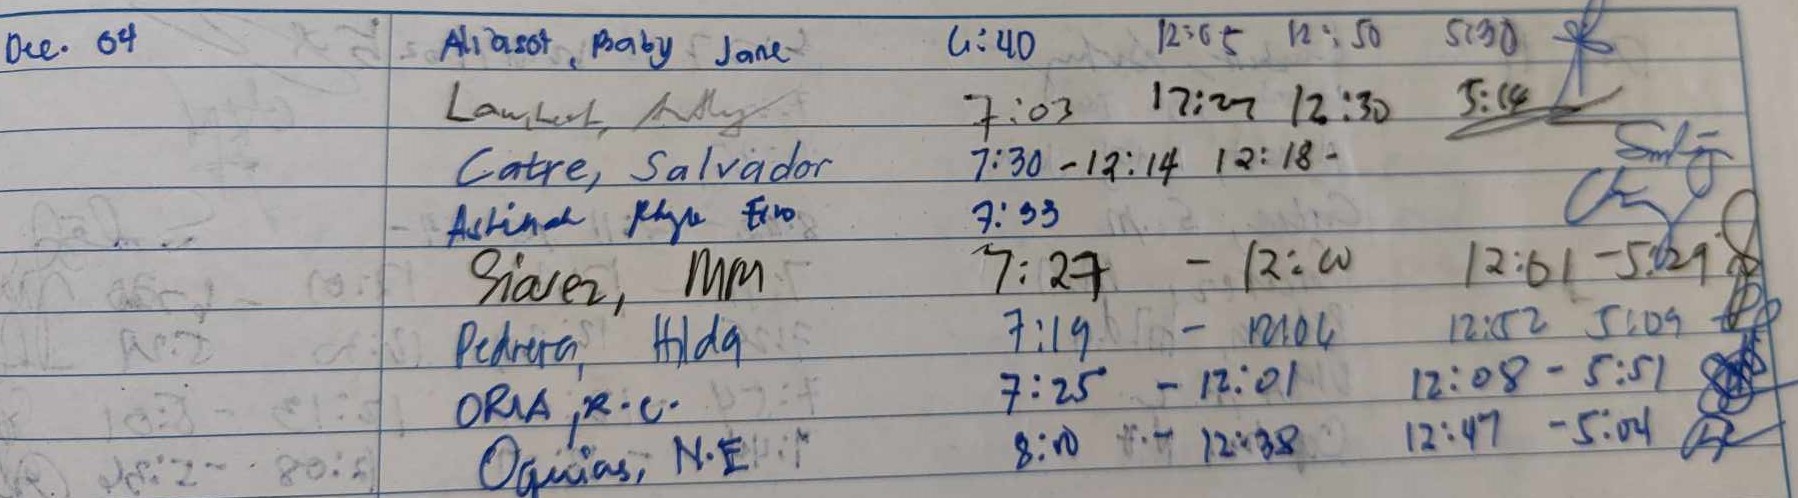 Dec. 04 Aliasot, Baby Jane 6:40 12:05 12:50 5:30
7:03 12:27 12:30 5:14
Catre, Salvador 7:30 - 12:14 12:18 -
7:33
Siarez, MM 7:27 - 12:00 12:01 - 5:29
Pedrera, Hilda 7:19 - 12:04 12:52 5:09
ORIA, R.C. 7:25 - 12:01 12:08 - 5:51
Oguias, N.E 8:10 - 12:38 12:47 - 5:04